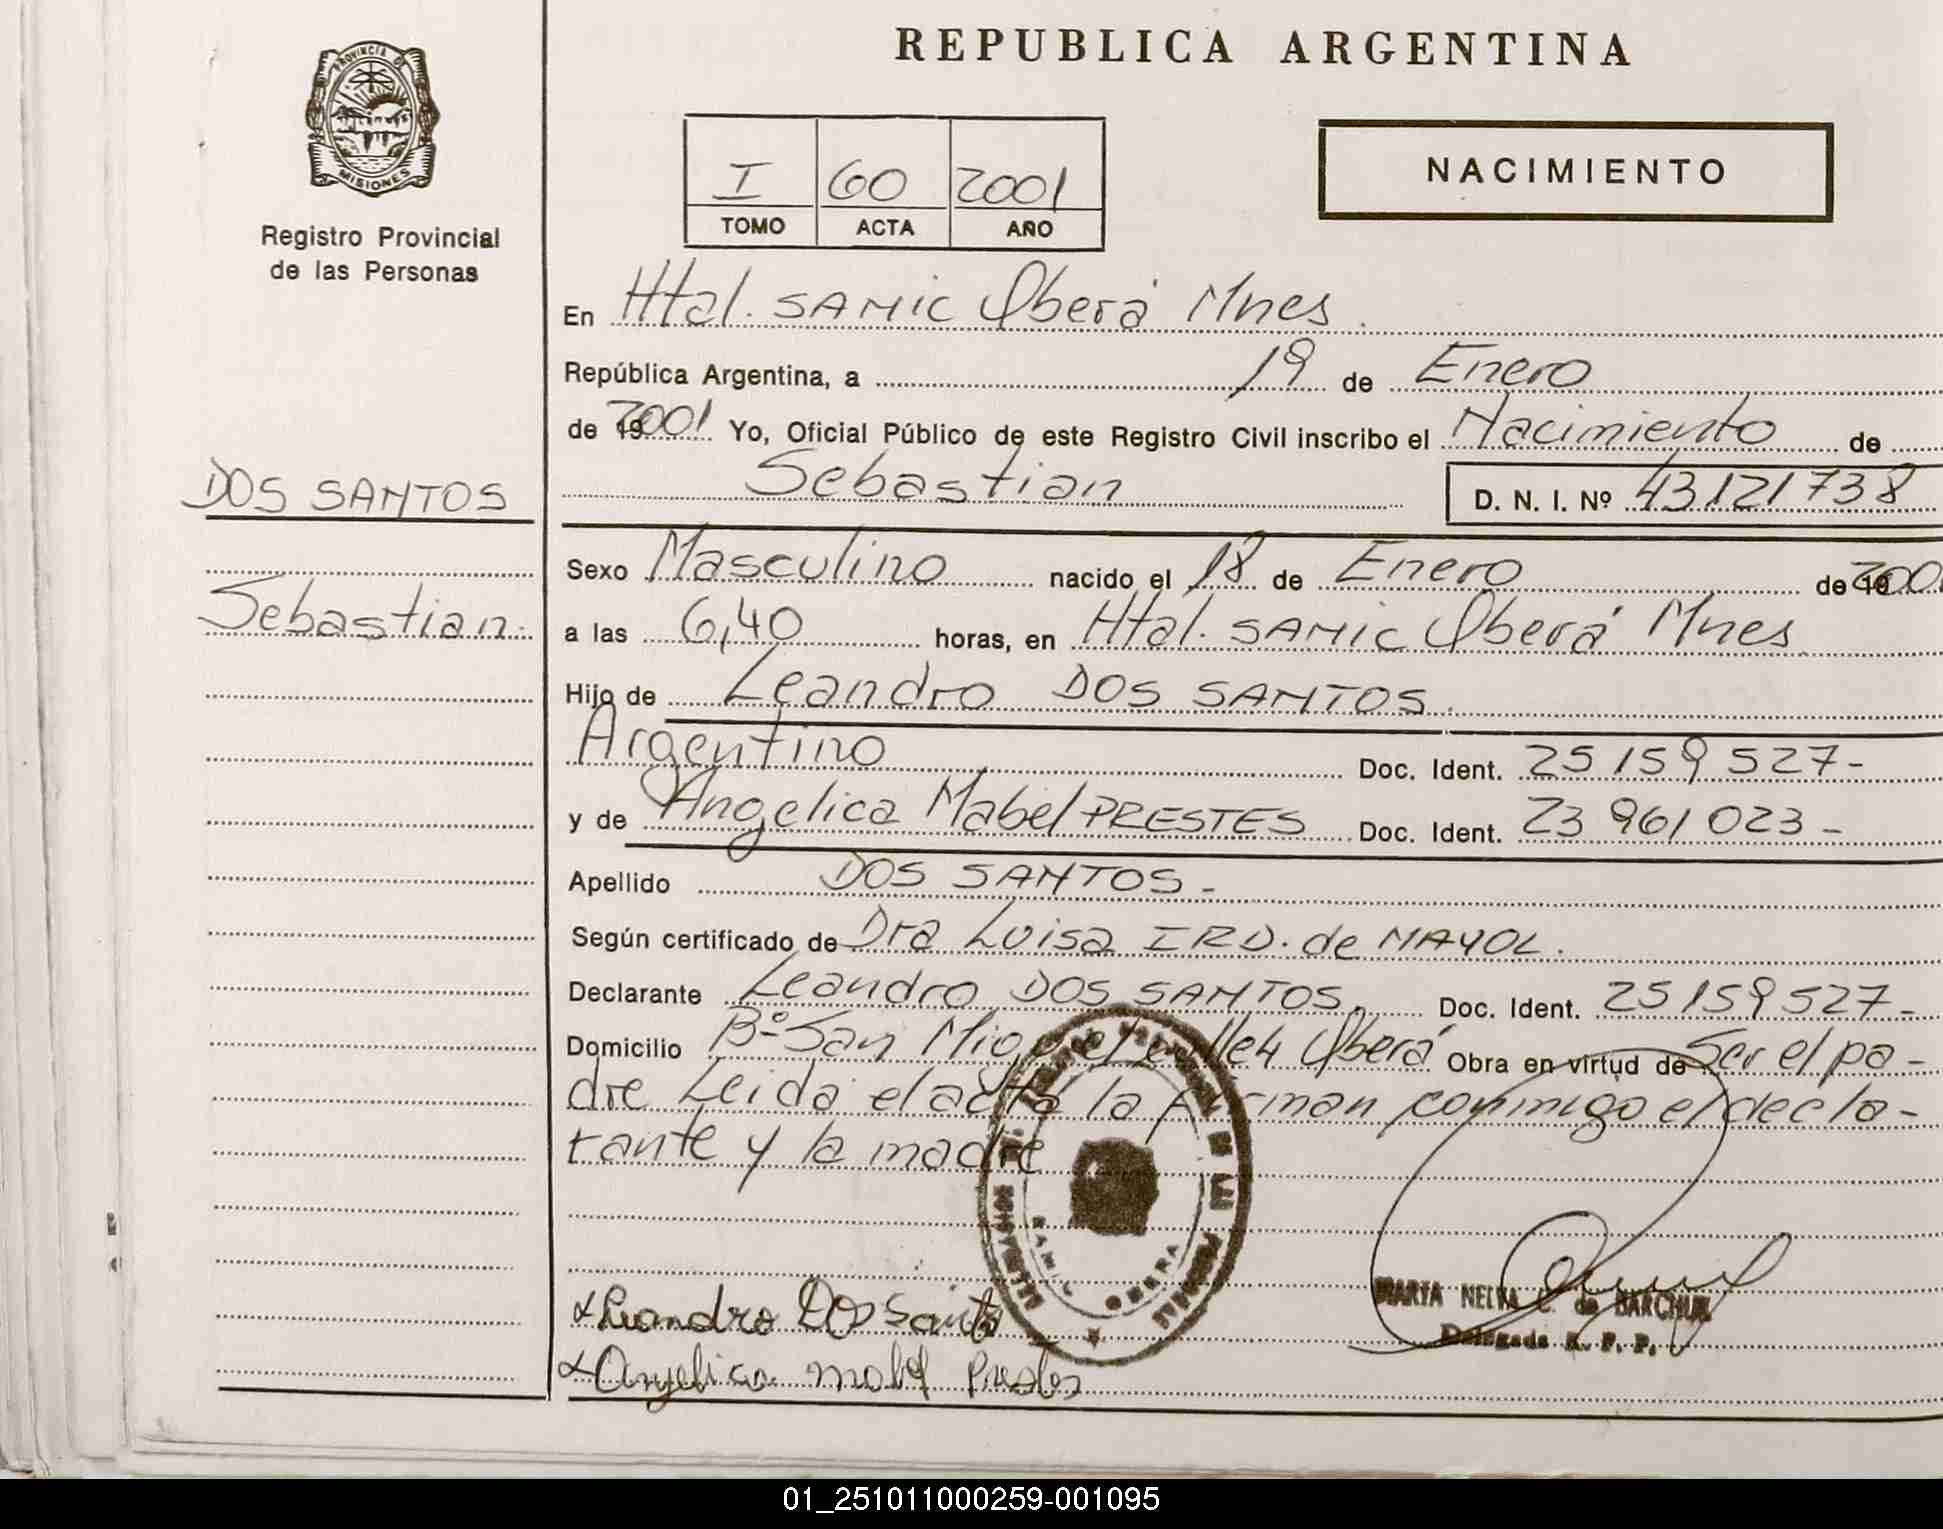 REPUBLICA ARGENTINA
PROVINCIA D
MISIONES
Registro Provincial
de las Personas
I 60 2001
TOMO ACTA AÑO
NACIMIENTO
En Htal. SAMIC Oberá Mnes.
República Argentina, a 19 de Enero
de 192001 Yo, Oficial Público de este Registro Civil inscribo el Nacimiento de
Sebastian D. N. I. Nº 43121738
DOS SANTOS
Sebastian.
Sexo Masculino nacido el 18 de Enero de 19200
a las 6,40 horas, en Htal. SAMIC Oberá Mnes.
Hijo de Leandro DOS SANTOS.
Argentino Doc. Ident. 25 159 527-
y de Angelica Mabel PRESTES Doc. Ident. 23 961 023-
Apellido DOS SANTOS-
Según certificado de Dra Luisa IRD. de MAYOL.
Declarante Leandro DOS SANTOS. Doc. Ident. 25 159 527-
Domicilio Bº San Miguel calle 4 Oberá Obra en virtud de Ser el pa-
dre Leida el acta la firman conmigo el decla-
rante y la madre
OBERA
Leandro Dos Santos
Angelica mabel Prestes
MARTA NELVA C. de BARCHUK
Delegada R. P. P.
01_251011000259-001095